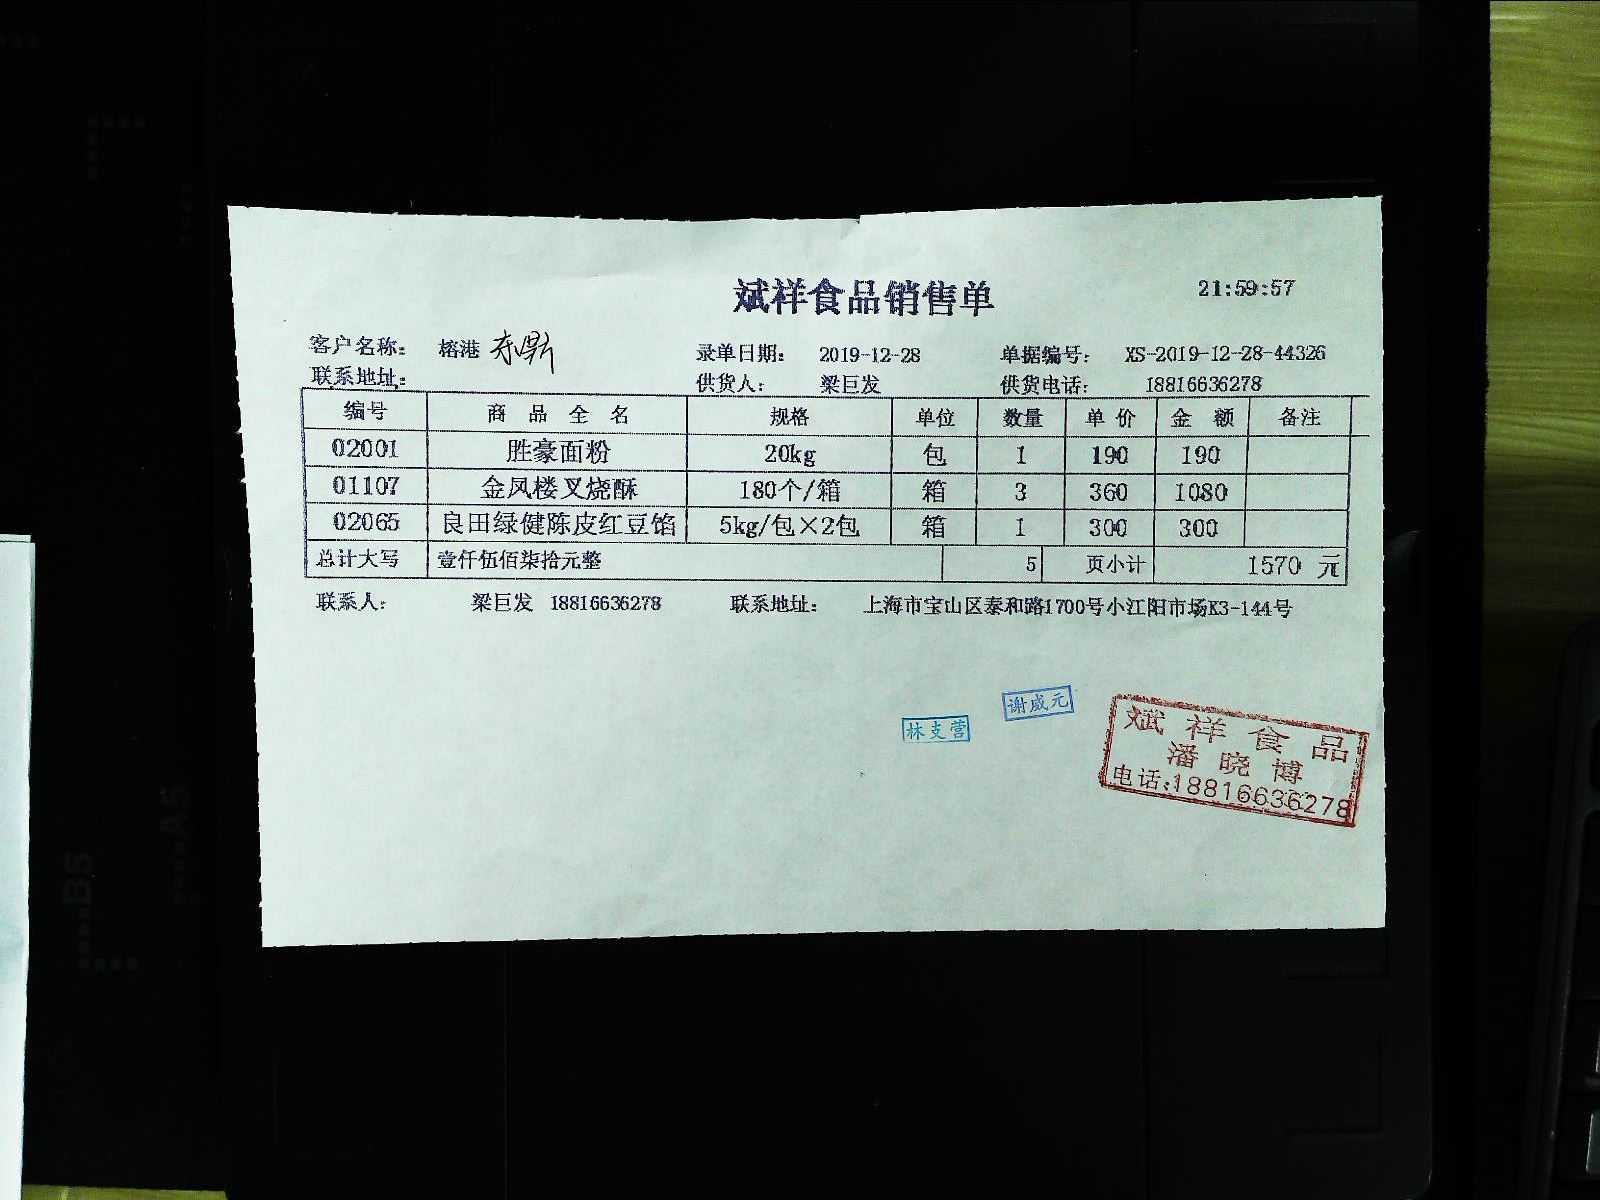 斌祥食品销售单 21:59:57
客户名称: 榕港 录单日期: 2019-12-28 单据编号: XS-2019-12-28-44326
联系地址: 供货人: 梁巨发 供货电话: 18816636278
编号 商品全名 规格 单位 数量 单价 金额 备注
02001 胜豪面粉 20kg 包 1 190 190
01107 金凤楼叉烧酥 180个/箱 箱 3 360 1080
02065 良田绿健陈皮红豆馅 5kg/包×2包 箱 1 300 300
总计大写 壹仟伍佰柒拾元整 5 页小计 1570 元
联系人: 梁巨发 18816636278 联系地址: 上海市宝山区泰和路1700号小江阳市场K3-144号
谢威元
林支营
斌祥食品
潘晓博
电话:18816636278
B5
A5